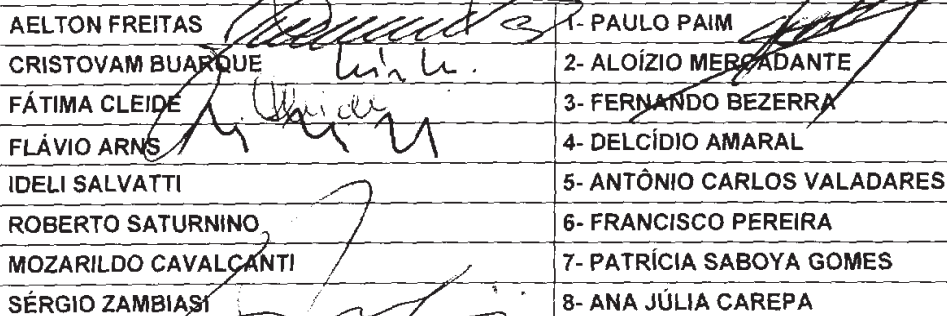 AELTON FREITAS 1- PAULO PAIM
CRISTOVAM BUARQUE 2- ALOÍZIO MERCADANTE
FÁTIMA CLEIDE 3- FERNANDO BEZERRA
FLÁVIO ARNS 4- DELCÍDIO AMARAL
IDELI SALVATTI 5- ANTÔNIO CARLOS VALADARES
ROBERTO SATURNINO 6- FRANCISCO PEREIRA
MOZARILDO CAVALCANTI 7- PATRÍCIA SABOYA GOMES
SÉRGIO ZAMBIASI 8- ANA JÚLIA CAREPA